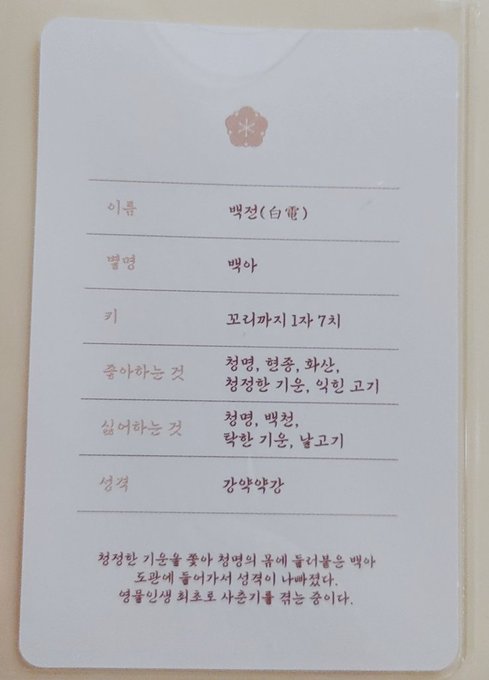 이름 백전(白電)
별명 백아
키 꼬리까지 1자 7치
좋아하는 것 청명, 현종, 화산,
청정한 기운, 익힌 고기
싫어하는 것 청명, 백천,
탁한 기운, 날고기
성격 강약약강
청정한 기운을 쫓아 청명의 몸에 들러붙은 백아
도관에 들어가서 성격이 나빠졌다.
영물인생 최초로 사춘기를 겪는 중이다.